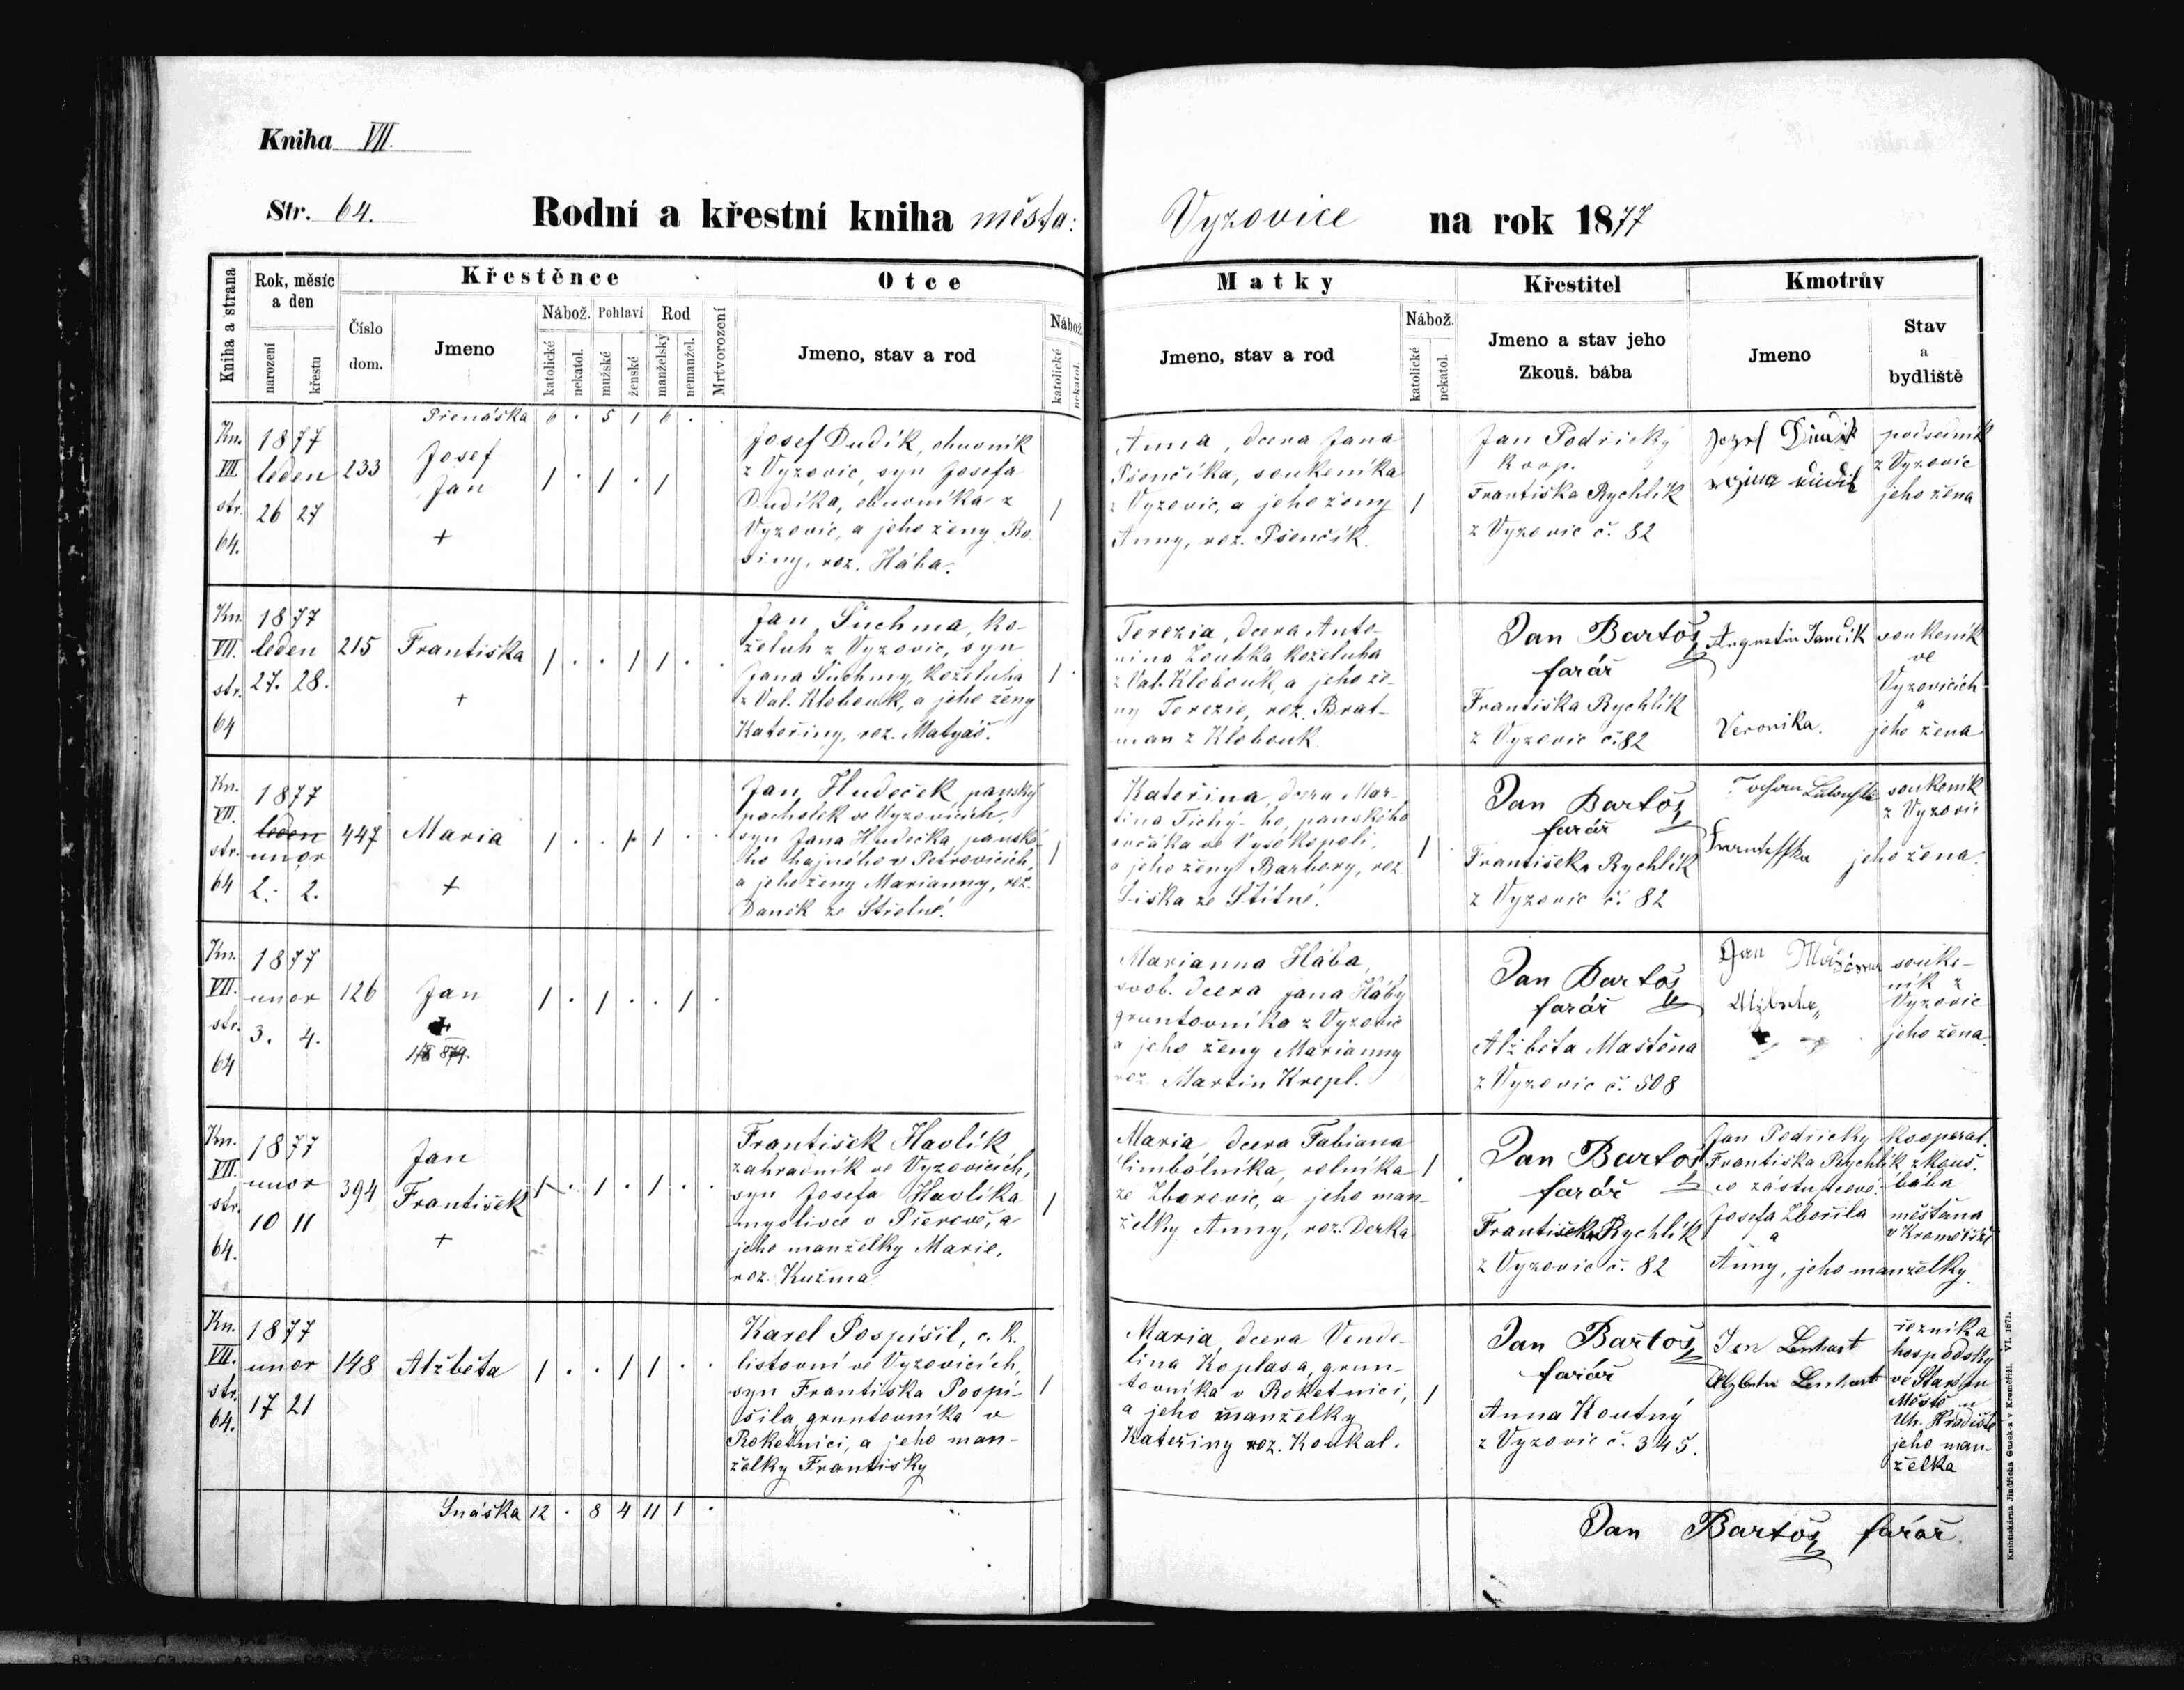 Kniha VII.
Str. 64.
Rodní a křestní kniha města:
Vyzovice na rok 1877
Kniha a strana
Rok, měsíc
a den
narození
křestu
Křestěnce
Číslo
dom.
Jmeno
Nábož.
katolické
nekatol.
Pohlaví
mužské
ženské
Rod
manželský
nemanžel.
Mrtvorození
Otce
Jmeno, stav a rod
Nábož.
katolické
nekatol.
Matky
Jmeno, stav a rod
Nábož.
katolické
nekatol.
Křestitel
Jmeno a stav jeho
Zkouš. bába
Kmotrův
Jmeno
Stav
a
bydliště
Přenáška 6 . 5 1 6 .
Kn.
VII
str.
64.
1877
leden
26 27
233
Josef
Jan
+
1 . 1 . 1
Josef Dudík, obuvník
z Vyzovic, syn Josefa
Dudíka, obuvníka z
Vyzovic, a jeho ženy Ro
siny, roz. Hába.
1
Anna, dcera Jana
Pšenčíka, soukeníka
z Vyzovic, a jeho ženy
Anny, roz. Pšenčík.
1
Jan Podřický
koop.
Františka Rychlík
z Vyzovic č. 82
Jozef Dudik
podsedník
z Vyzovic
jeho žena
Kn.
VII.
str.
64
1877
leden
27. 28.
215
Františka
+
1 . . 1 1 . .
Jan Suchma, ko-
želuh z Vyzovic, syn
Jana Suchmy, koželuha
z Val. Klobouk, a jeho ženy
Kateřiny, roz. Matyáš.
1 .
Terezia, dcera Anto-
nina Zoubka koželuha
z Val. Klobouk, a jeho že-
ny Terezie, roz. Brat-
man z Klobouk.
Jan Bartoš
farář
Františka Rychlík
z Vyzovic č. 82
Augustin Jančik
Veronika.
soukeník
ve
Vyzovicích
a
jeho žena
Kn.
VII.
str.
64
1877
leden
unor
2. 2.
447
Maria
+
1 . . 1 1 . .
Jan Hudeček, panský
pacholek ve Vyzovicích,
syn Jana Hudečka, panské-
ho hajného v Petrovicích,
a jeho ženy Marianny, roz.
Daněk ze Střelné.
1
Kateřina, dcera Mar-
tina Tichý-ho, panského
ovčáka ve Vysokopoli,
a jeho ženy Barbory, roz.
Liska ze Štítné.
1
Jan Bartoš
farář
Františka Rychlík
z Vyzovic č. 82
soukeník
z Vyzovic
jeho žena.
Kn.
VII.
str.
64
1877
unor
3. 4.
126
Jan
+
1 . 1 . . 1 .
Marianna Hába,
svob. dcera Jana Háby
gruntovníka z Vyzovic
a jeho ženy Marianny
roz. Martin Krepl.
Jan Bartoš
farář
Alžběta Maštěna
z Vyzovic č. 508
Jan
souke-
ník z
Vyzovic
jeho žena.
Kn.
VII.
str.
64.
1877
unor
10 11
394
Jan
František
+
1 . 1 . 1 . .
František Havlík
zahradník ve Vyzovicích,
syn Josefa Havlíka
myslivce v Přerově, a
jeho manželky Marie,
roz. Kužma.
1
Maria, dcera Fabiana
Cimbálníka, rolníka
ze Zborovic, a jeho man-
želky Anny, roz. Derka
1 .
Jan Bartoš
farář
Františka Rychlík
z Vyzovic č. 82
Jan Podřicky kooperat.
Františka Rychlík zkouš.
co zástupcové: bába
Josefa Zbořila měštana
a v Kroměříži
Anny, jeho manželky.
Kn.
VII.
str.
64.
1877
unor
17 21
148
Alžběta
1 . . 1 1 . .
Karel Pospíšil, c. k.
listovní ve Vyzovicích,
syn Františka Pospí-
šila, gruntovníka v
Roketnici, a jeho man-
želky Františky
1
Maria, dcera Vende-
lina Koplasa, grun-
tovníka v Roketnici,
a jeho manželky
Kateřiny roz. Koukal.
1
Jan Bartoš
farář
Anna Koutný
z Vyzovic č. 345.
Jan Lenhart
Alzbeta Lenhart
řezníka
hospodský
ve Starém
Městě u
Uh. Hradiště
jeho man-
želka
Snáška 12 . 8 4 11 1 .
Jan Bartoš farář.
Knihtiskárna Jindřicha Guseka v Kroměříži. VI. 1871.